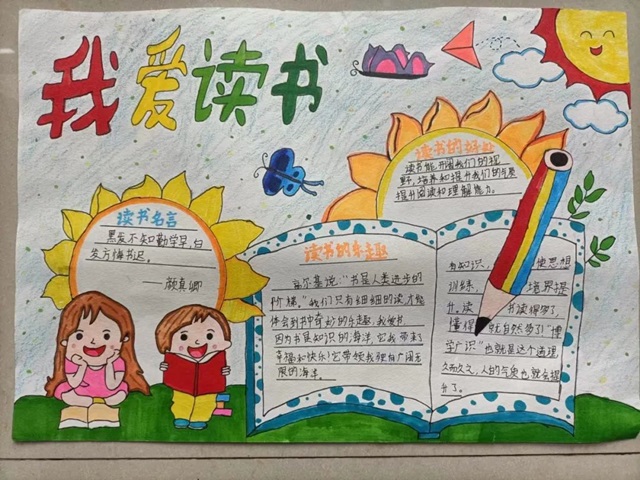 我爱读书
读书的好处
读书能开阔我们的视
野,培养和提升我们的气质
提升阅读和理解能力。
读书名言
黑发不知勤学早,白
发方悔书迟。
——颜真卿
读书的乐趣
高尔基说:"书是人类进步的
阶梯。"我们只有细细的读,才能
体会到书中奇妙的乐趣,我爱书
因为书是知识的海洋,它我带来了
幸福和快乐!它带领我驶向广阔无
限的海洋。
有知识,
思想
训练,
培养提
升。读
书读得多了,
懂得
就自然多了!"博
学广识"也就是这个道理,
久而久之,人的气质也就会提
升了。